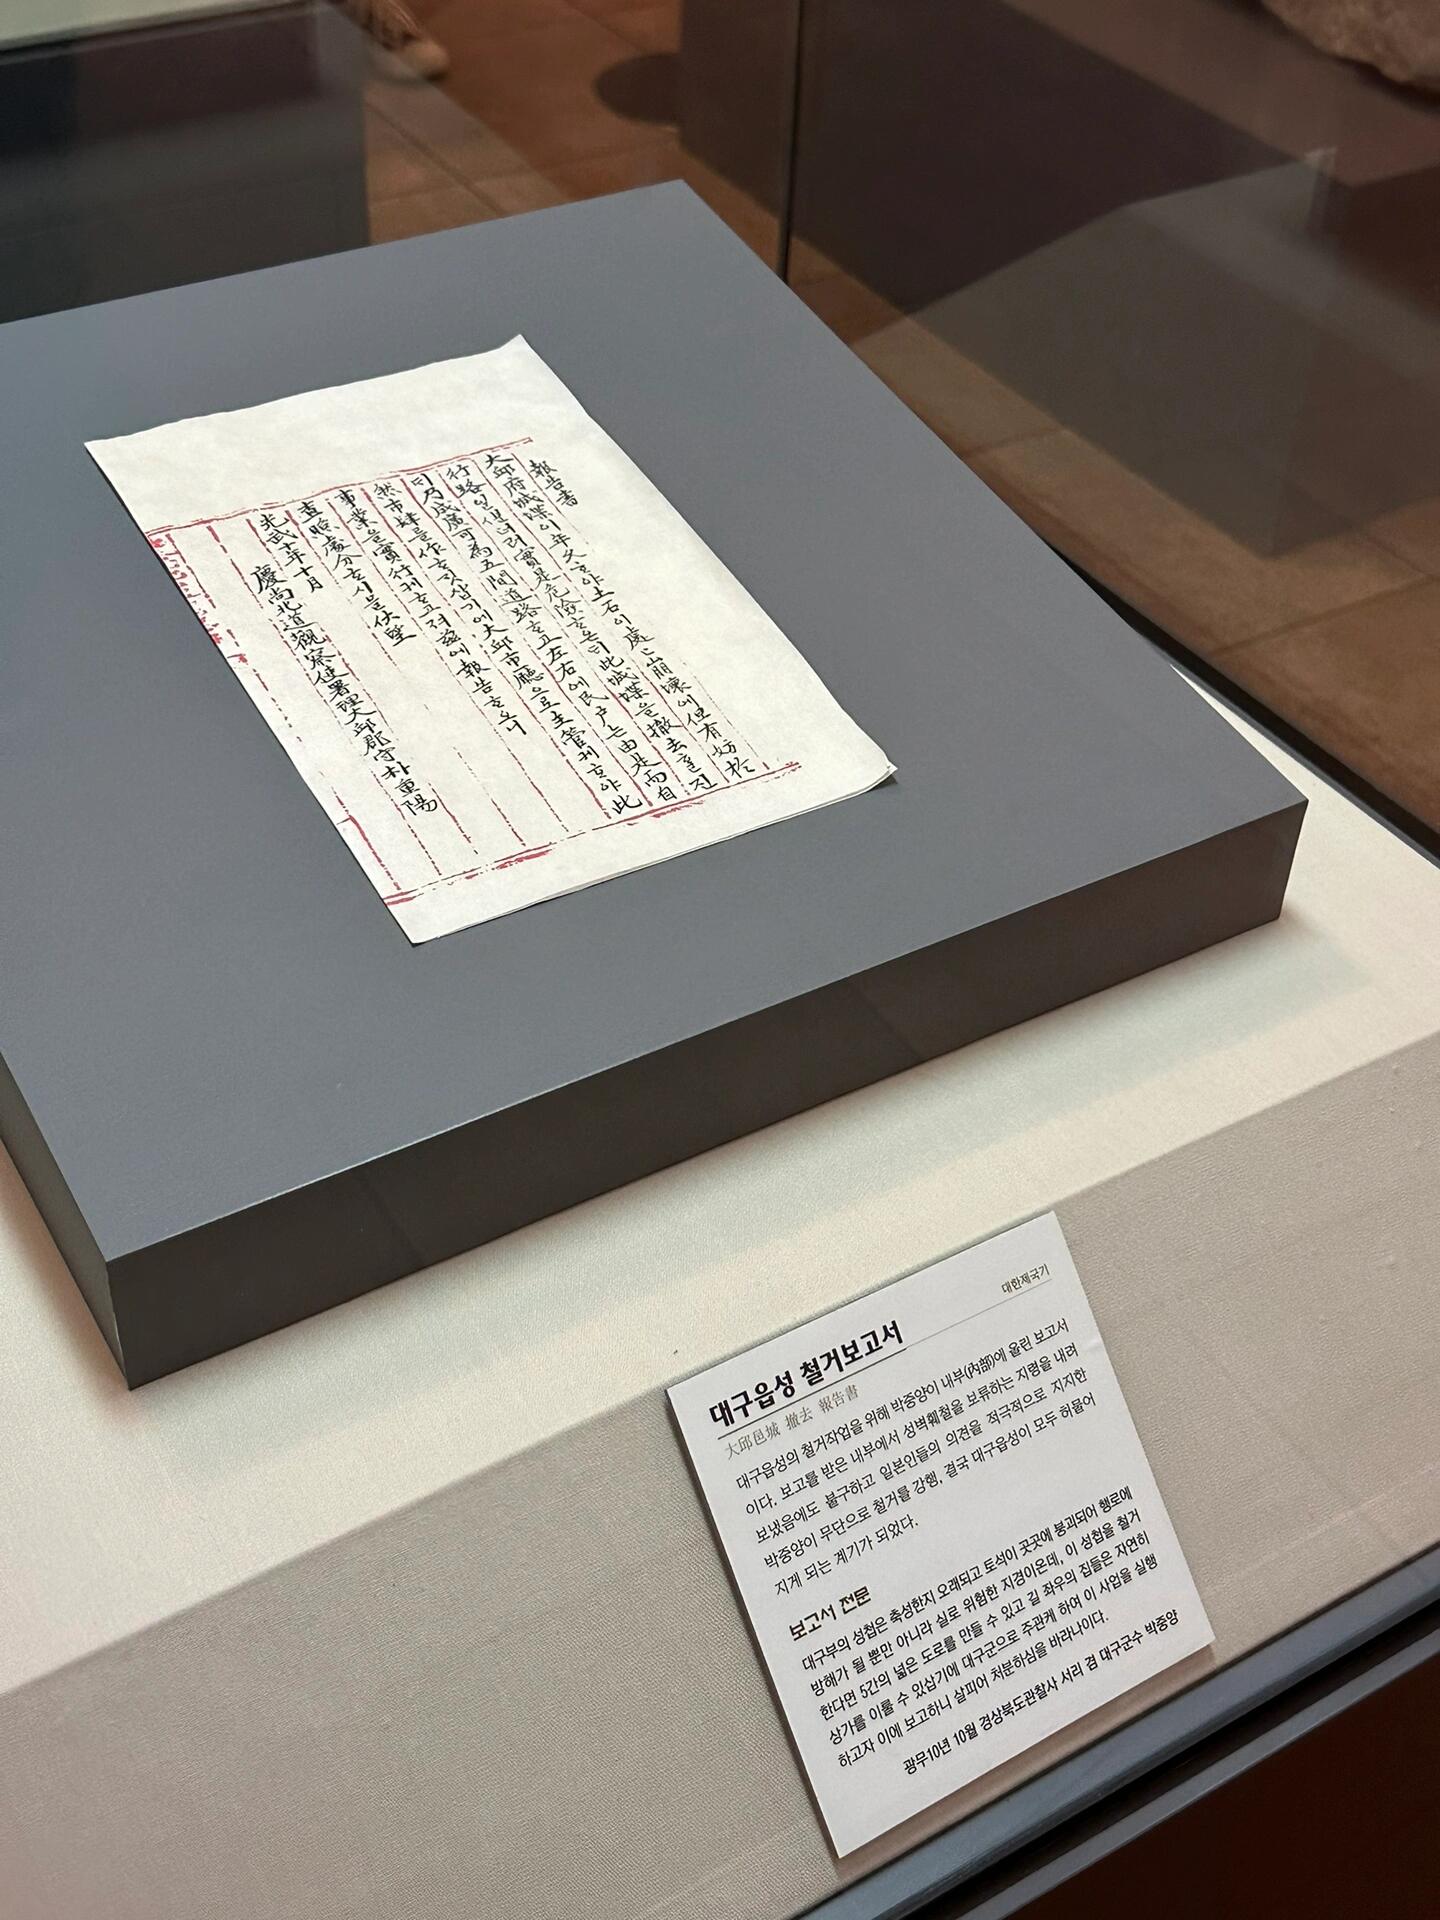 報告書
大邱府城堞이年久하야土石이處々崩壞에但有妨於
行路일뿐더러實是危險하온지此城堞을撤去할진
則乃成廣可為五間道路하고左右에民戶는由是而自
然市肆를作하깃삽기에大邱市廳으로主管케하야此
事業을實行케하고저玆에報告하오니
查照處分하시믈伏望
光武十年十月
慶尚北道觀察使署理大邱郡守朴重陽
대한제국기
대구읍성 철거보고서
大邱邑城 撤去 報告書
대구읍성의 철거작업을 위해 박중양이 내부(內部)에 올린 보고서
이다. 보고를 받은 내부에서 성벽훼철을 보류하는 지령을 내려
보냈음에도 불구하고 일본인들의 의견을 적극적으로 지지한
박중양이 무단으로 철거를 강행, 결국 대구읍성이 모두 허물어
지게 되는 계기가 되었다.
보고서 전문
대구부의 성첩은 축성한지 오래되고 토석이 곳곳에 붕괴되어 행로에
방해가 될 뿐만 아니라 실로 위험한 지경이온데, 이 성첩을 철거
한다면 5간의 넓은 도로를 만들 수 있고 길 좌우의 집들은 자연히
상가를 이룰 수 있삽기에 대구군으로 주관케 하여 이 사업을 실행
하고자 이에 보고하니 살피어 처분하심을 바라나이다.
광무10년 10월 경상북도관찰사 서리 겸 대구군수 박중양